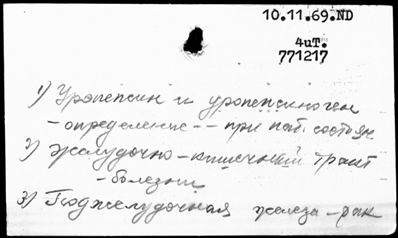 10.11.69.ND
4иT.
771217
1) Уропепсин и уропепсиноген
- определение -- при пат. состоян
2) Желудочно-кишечный тракт
- болезни
3) Поджелудочная железа - рак